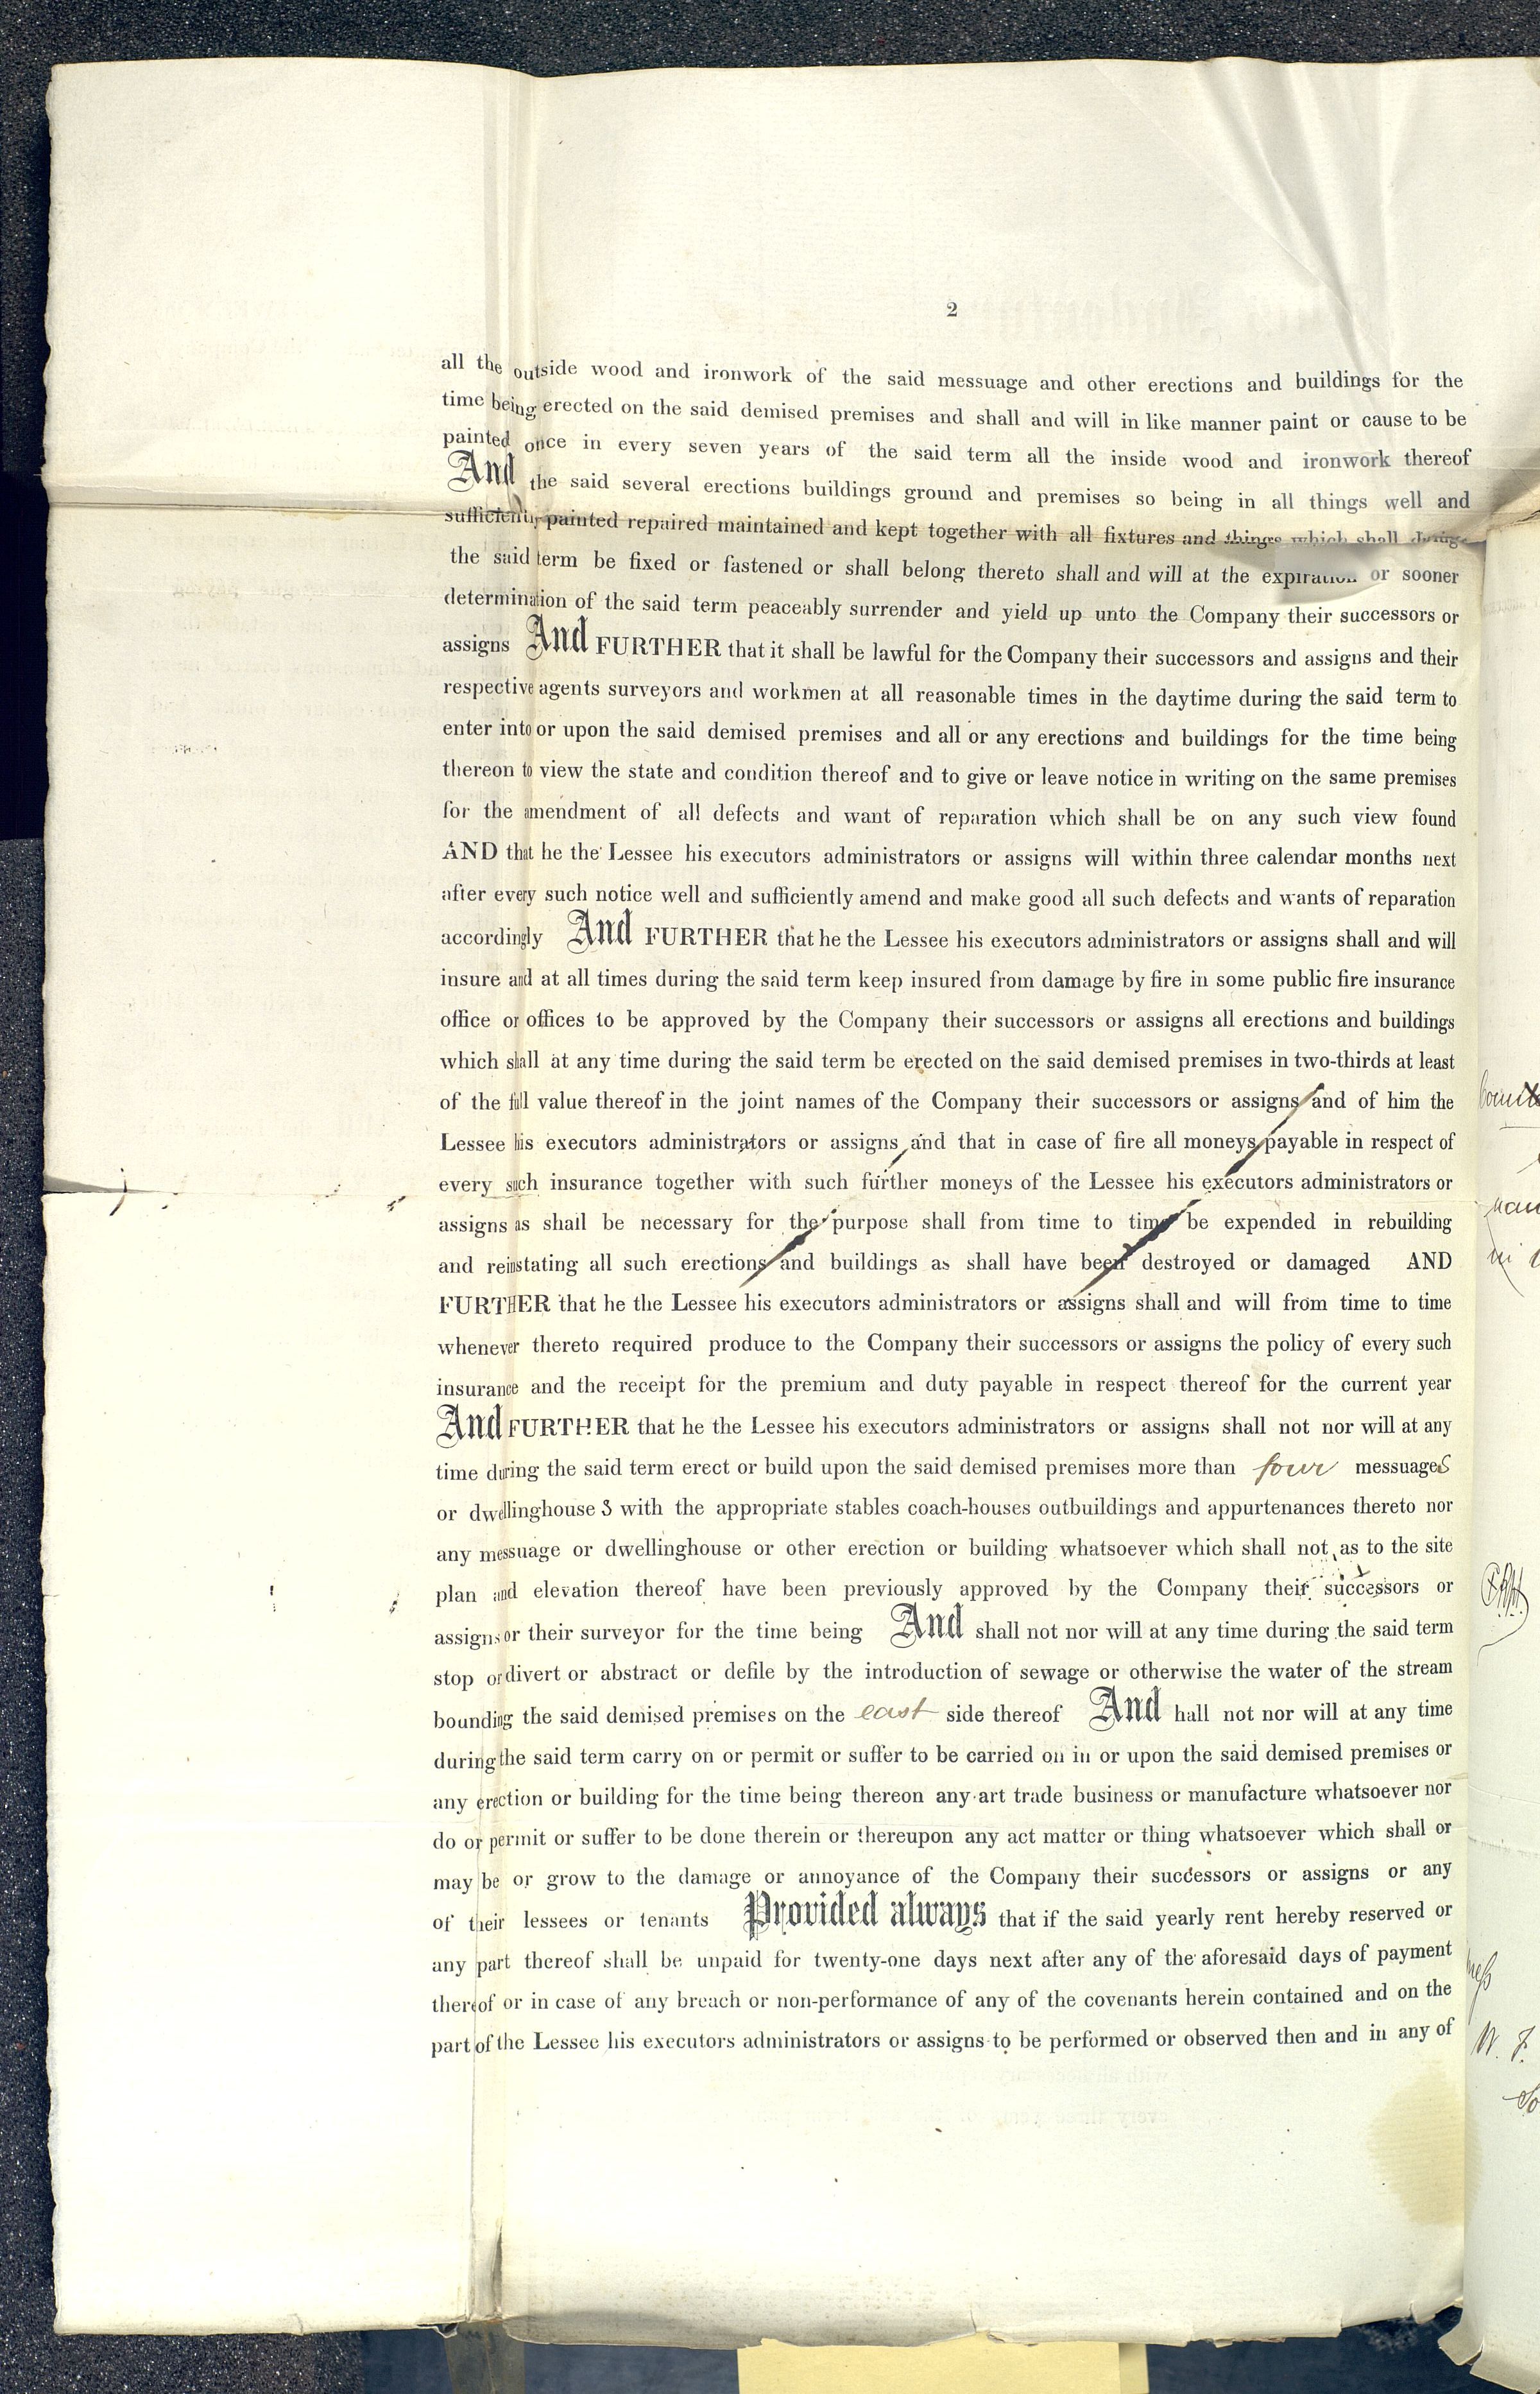 2
all the outside wood and ironwork of the said messuage and other erections and buildings for the
time being erected on the said demised premises and shall and will in like manner paint or cause to be
painted once in every seven years of the said term all the inside wood and ironwork thereof
And the said several erections buildings ground and premises so being in all things well and
sufficiently painted repaired maintained and kept together with all fixtures and things which shall during
the said term be fixed or fastened or shall belong thereto shall and will at the expiration or sooner
determination of the said term peaceably surrender and yield up unto the Company their successors or
assigns And FURTHER that it shall be lawful for the Company their successors and assigns and their
respective agents surveyors and workmen at all reasonable times in the daytime during the said term to
enter into or upon the said demised premises and all or any erections and buildings for the time being
thereon to view the state and condition thereof and to give or leave notice in writing on the same premises
for the amendment of all defects and want of reparation which shall be on any such view found
AND that he the Lessee his executors administrators or assigns will within three calendar months next
after every such notice well and sufficiently amend and make good all such defects and wants of reparation
accordingly And FURTHER that he the Lessee his executors administrators or assigns shall and will
insure and at all times during the said term keep insured from damage by fire in some public fire insurance
office or offices to be approved by the Company their successors or assigns all erections and buildings
which shall at any time during the said term be erected on the said demised premises in two-thirds at least
of the full value thereof in the joint names of the Company their successors or assigns and of him the
Lessee his executors administrators or assigns and that in case of fire all moneys payable in respect of
every such insurance together with such further moneys of the Lessee his executors administrators or
assigns as shall be necessary for the purpose shall from time to time be expended in rebuilding
and reinstating all such erections and buildings as shall have been destroyed or damaged AND
FURTHER that he the Lessee his executors administrators or assigns shall and will from time to time
whenever thereto required produce to the Company their successors or assigns the policy of every such
insurance and the receipt for the premium and duty payable in respect thereof for the current year
And FURTHER that he the Lessee his executors administrators or assigns shall not nor will at any
time during the said term erect or build upon the said demised premises more than four messuages
or dwellinghouse s with the appropriate stables coach-houses outbuildings and appurtenances thereto nor
any messuage or dwellinghouse or other erection or building whatsoever which shall not as to the site
plan and elevation thereof have been previously approved by the Company their successors or
assigns or their surveyor for the time being And shall not nor will at any time during the said term
stop or divert or abstract or defile by the introduction of sewage or otherwise the water of the stream
bounding the said demised premises on the east side thereof And hall not nor will at any time
during the said term carry on or permit or suffer to be carried on in or upon the said demised premises or
any erection or building for the time being thereon any art trade business or manufacture whatsoever nor
do or permit or suffer to be done therein or thereupon any act matter or thing whatsoever which shall or
may be or grow to the damage or annoyance of the Company their successors or assigns or any
of their lessees or tenants Provided always that if the said yearly rent hereby reserved or
any part thereof shall be unpaid for twenty-one days next after any of the aforesaid days of payment
thereof or in case of any breach or non-performance of any of the covenants herein contained and on the
part of the Lessee his executors administrators or assigns to be performed or observed then and in any of